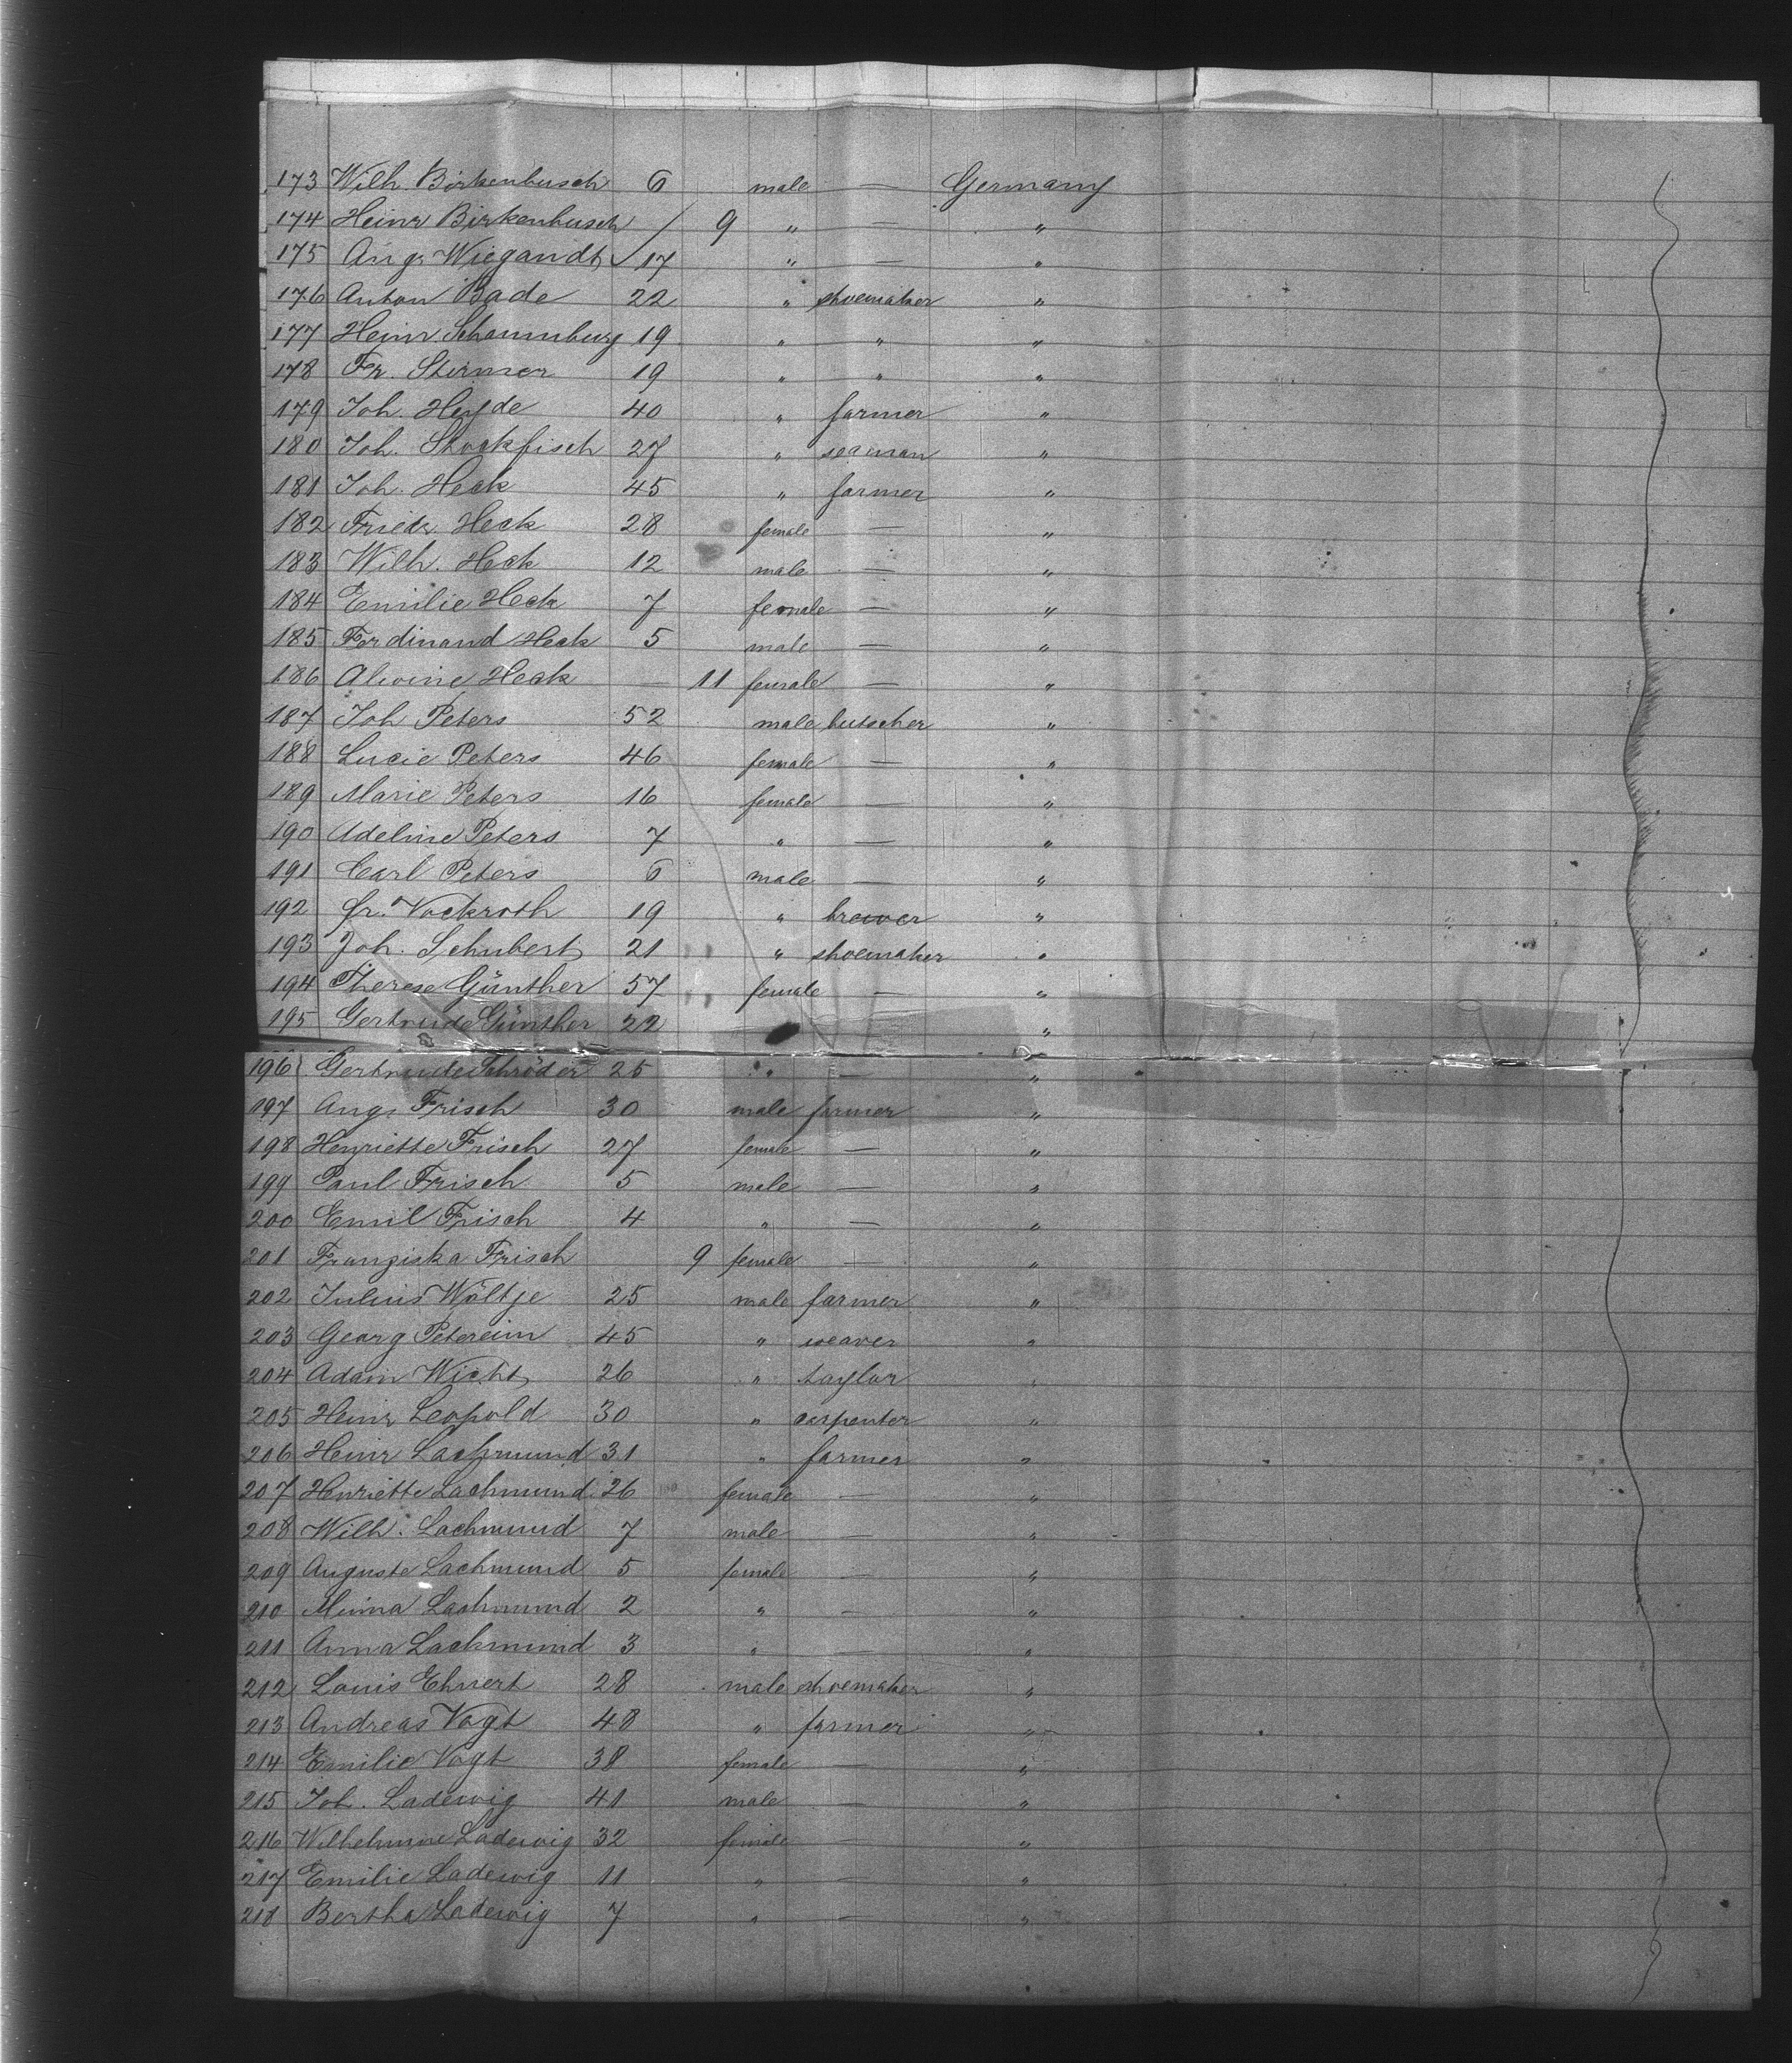 173 Wilh. Birkenbusch 6 male — Germany
174 Heinr Birkenbusch / 9 " — "
175 Aug. Wiegandt 17 " — "
176 Anton Bade 22 " shoemaker "
177 Heinr. Schaumburg 19 " " "
178 Fr. Stirmer 19 " " "
179 Joh. Heyde 40 " farmer "
180 Joh. Stockfisch 27 " seaman "
181 Joh. Heck 45 " farmer "
182 Friedr. Heck 28 female — "
183 Wilh. Heck 12 male — "
184 Emilie Heck 7 female — "
185 Ferdinand Heck 5 male — "
186 Alwine Heck — 11 female — "
187 Joh Peters 52 male butscher "
188 Lucie Peters 46 female — "
189 Marie Peters 16 female — "
190 Adeline Peters 7 " — "
191 Carl Peters 6 male — "
192 Fr. Vockroth 19 " brewer "
193 Joh. Schubert 21 " shoemaker "
194 Therese Günther 57 female — "
195 Gertrude Günther 22 "
196 Gertrude Schröder 25 " — "
197 Aug. Frisch 30 male farmer "
198 Henriette Frisch 27 female — "
199 Paul Frisch 5 male — "
200 Emil Frisch 4 " — "
201 Franziska Frisch 9 female — "
202 Julius Wöltje 25 male farmer "
203 Georg Petereim 45 " weaver "
204 Adam Wicht 26 " taylor "
205 Heinr Leopold 30 " carpenter "
206 Heinr Lachmund 31 " farmer "
207 Henriette Lachmund 26 female — "
208 Wilh. Lachmund 7 male — "
209 Auguste Lachmund 5 female — "
210 Minna Lachmund 2 " — "
211 Anna Lachmund 3 " — "
212 Louis Ehnert 28 male shoemaker "
213 Andreas Vogt 48 " farmer "
214 Emilie Vogt 38 female — "
215 Joh. Ladewig 41 male — "
216 Wilhelmine Ladewig 32 female — "
217 Emilie Ladewig 11 " — "
218 Bertha Ladewig 7 " — "